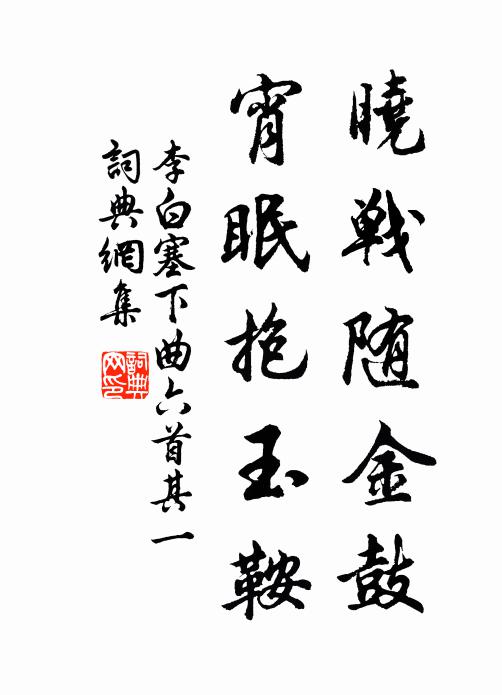 曉戦随金鼓
宵眠抱玉鞍
李白塞下曲六首其一
詞典網集
詞典
网印